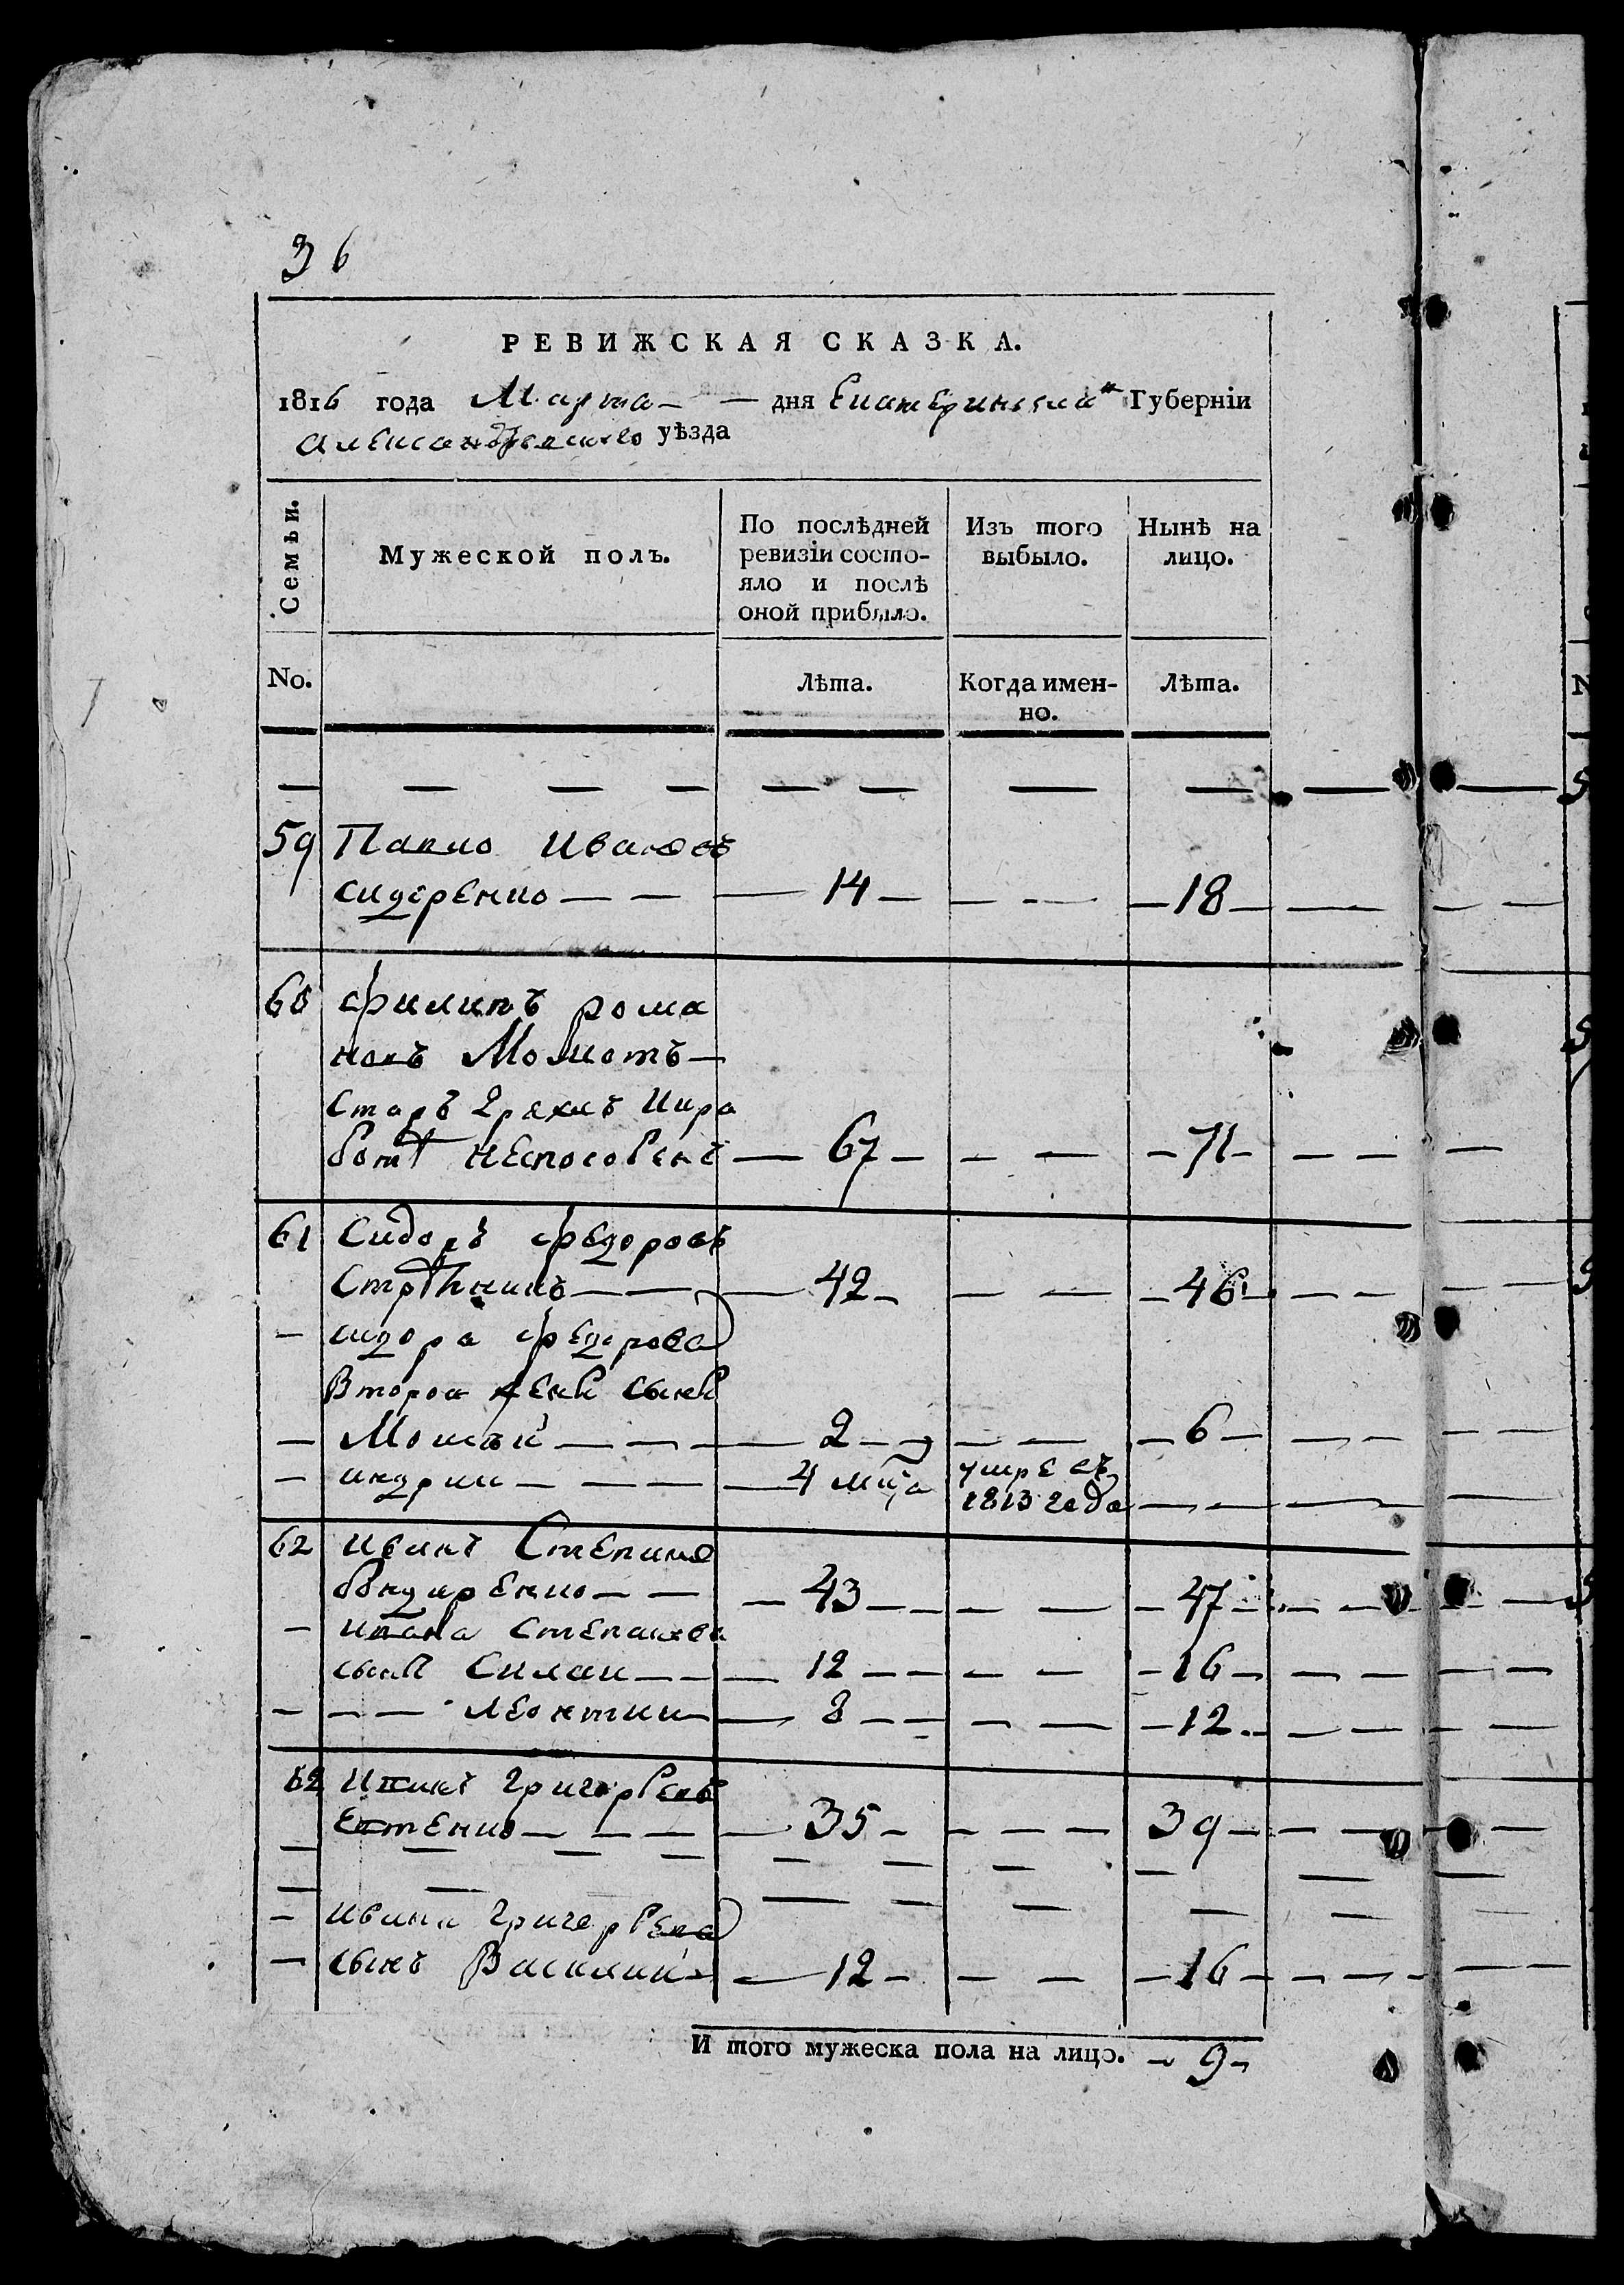 36
РЕВИЖСКАЯ СКАЗКА.
1816 года Марта — — дня Екатеринской Губерніи
Александровского уѣзда
Семьи.
Мужеской полъ.
По послѣдней
ревизіи состо-
яло и послѣ
оной прибыло.
Изъ того
выбыло.
Нынѣ на
лицо.
No.
Лѣта.
Когда имен-
но.
Лѣта.
— — — — — — — —
59 Павло Ивановъ
сидоренко — — — 14 — — - — — 18 —
60 филипъ рома
новъ Момотъ —
Старъ дряхлъ и кра
ботѣ неспособенъ — 67 — — — — 71 —
61 Сидоръ федоровъ
Стрѣнникъ — — — 42 — — — — 46 —
— сидора федорова
Второй жены сыны
— Мойсѣй — — — 2 — — — — 6 —
— андрий — — — — 4 мца умре въ
1813 года — —
62 иванъ Степанов
бондаренко — — — 43 — — — — — 47 —
— ивана Степанова
сынъ Силай — — — 12 — — — — — 16 —
— — — леонтий — — 8 — — — — — 12 —
62 Иванъ григорьевъ
Евтенко — — — — 35 — — — — 39 —
— — — — — — — —
— — — — — —
— ивана григорьева
— сынъ Василий — — 12 — — — — 16 —
И того мужеска пола на лицо. — 9 —